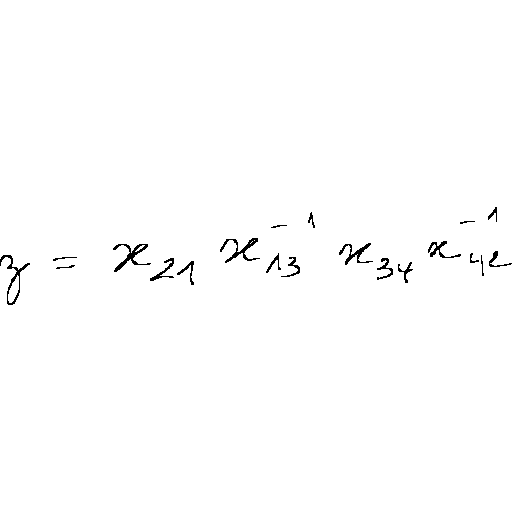 z = x_{21} x_{13}^{-1} x_{34} x_{42}^{-1}